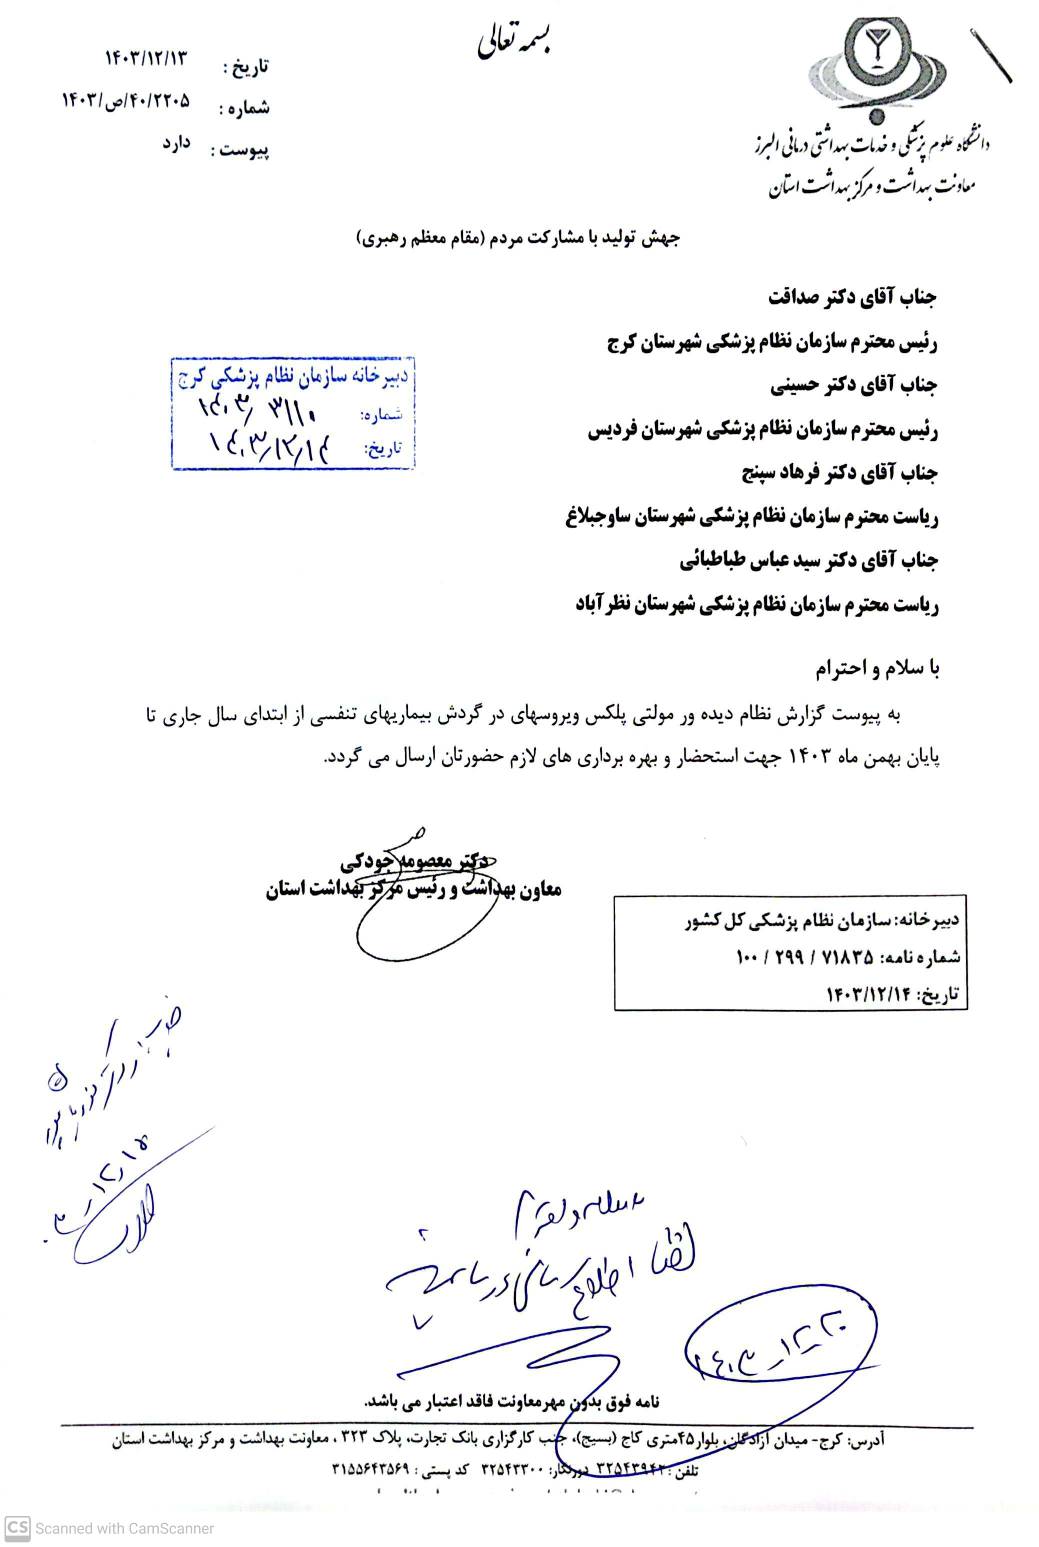 بسمه تعالی
دانشگاه علوم پزشکی و خدمات بهداشتی درمانی البرز
معاونت بهداشت و مرکز بهداشت استان
تاریخ : ۱۴۰۳/۱۲/۱۳
شماره : ۱۴۰۳/ص/۴۰/۲۲۰۵
پیوست : دارد
جهش تولید با مشارکت مردم (مقام معظم رهبری)
جناب آقای دکتر صداقت
رئیس محترم سازمان نظام پزشکی شهرستان کرج
جناب آقای دکتر حسینی
رئیس محترم سازمان نظام پزشکی شهرستان فردیس
جناب آقای دکتر فرهاد سپنج
ریاست محترم سازمان نظام پزشکی شهرستان ساوجبلاغ
جناب آقای دکتر سید عباس طباطبائی
ریاست محترم سازمان نظام پزشکی شهرستان نظرآباد
دبیرخانه سازمان نظام پزشکی کرج
شماره: ۱۴۰۳/ ۳۱۱۰
تاریخ: ۱۴۰۳/۱۲/۱۴
با سلام و احترام
به پیوست گزارش نظام دیده ور مولتی پلکس ویروسهای در گردش بیماریهای تنفسی از ابتدای سال جاری تا
پایان بهمن ماه ۱۴۰۳ جهت استحضار و بهره برداری های لازم حضورتان ارسال می گردد.
دکتر معصومه جودکی
معاون بهداشت و رئیس مرکز بهداشت استان
دبیرخانه: سازمان نظام پزشکی کل کشور
شماره نامه: ۷۱۸۳۵ / ۲۹۹ / ۱۰۰
تاریخ: ۱۴۰۳/۱۲/۱۴
۰۳-۱۲-۱۵
لطفا اطلاع رسانی در سایت
۱۴۰۳-۱۲-۲۰
نامه فوق بدون مهرمعاونت فاقد اعتبار می باشد.
آدرس: کرج- میدان آزادگان، بلوار۴۵متری کاج (بسیج)، جنب کارگزاری بانک تجارت، پلاک ۳۲۳ ، معاونت بهداشت و مرکز بهداشت استان
تلفن :۳۲۵۴۳۹۴۲ دورنگار: ۳۲۵۴۳۳۰۰ کد پستی : ۳۱۵۵۶۴۳۵۶۹
CS Scanned with CamScanner